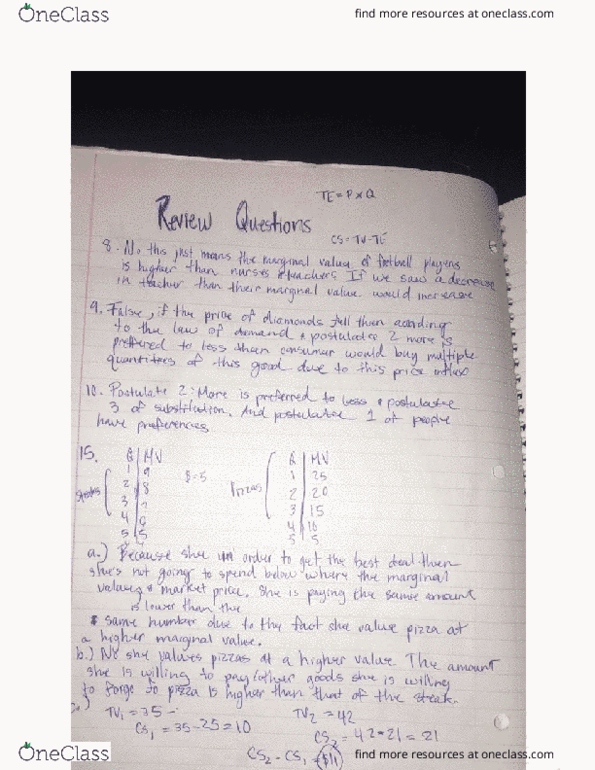 OneClass
find more resources at oneclass.com
TE = P x Q
Review Questions
CS = TV - TE
8. No, this just means the marginal value of football players
is higher than nurses & teachers. If we saw a decrease
in teacher than their marginal value would increase
9. False, if the price of diamonds fall then
to the law of demand & postulates 2 more is
preffered to less then consumer would buy multiple
quantities of this good due to this price
10. Postulate 2: More is preferred to less & postulate
3 of substitution. And postulate 1 of people
have preferences
15.
Q | MV
1 | 9
2 | 8
3 | 7
4 | 6
5 | 5
$ = 5
Pizzas
Q | MV
1 | 25
2 | 20
3 | 15
4 | 10
5 | 5
a.) Because she in order to get the best deal then
she's not going to spend below where the marginal
value & market price. She is paying the same amount
is lower than the
same number due to the fact she value pizza at
a higher marginal value.
b.) No she values pizzas at a higher value. The amount
she is willing to pay/other goods she is willing
to forge to pizza is higher than that of the steak.
TV1 = 35 -
CS1 = 35 - 25 = 10
TV2 = 42
CS2 = 42 - 21 = 21
CS2 - CS1 = $11
OneClass
find more resources at oneclass.com